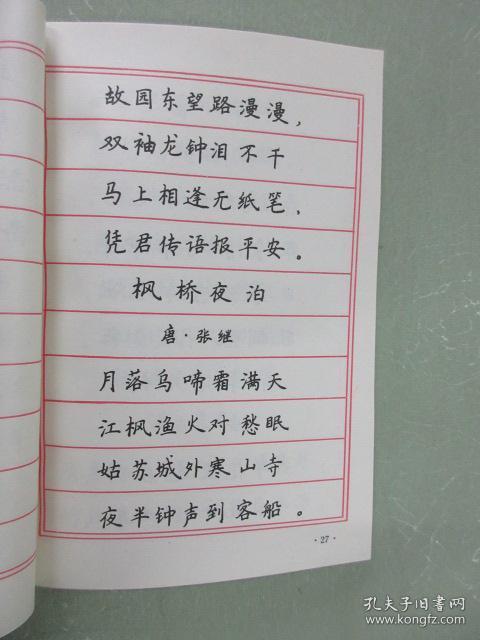 故园东望路漫漫，
双袖龙钟泪不干
马上相逢无纸笔，
凭君传语报平安。
枫桥夜泊
唐·张继
月落乌啼霜满天
江枫渔火对愁眠
姑苏城外寒山寺
夜半钟声到客船。
·27·
孔夫子旧书网
kongfz.com